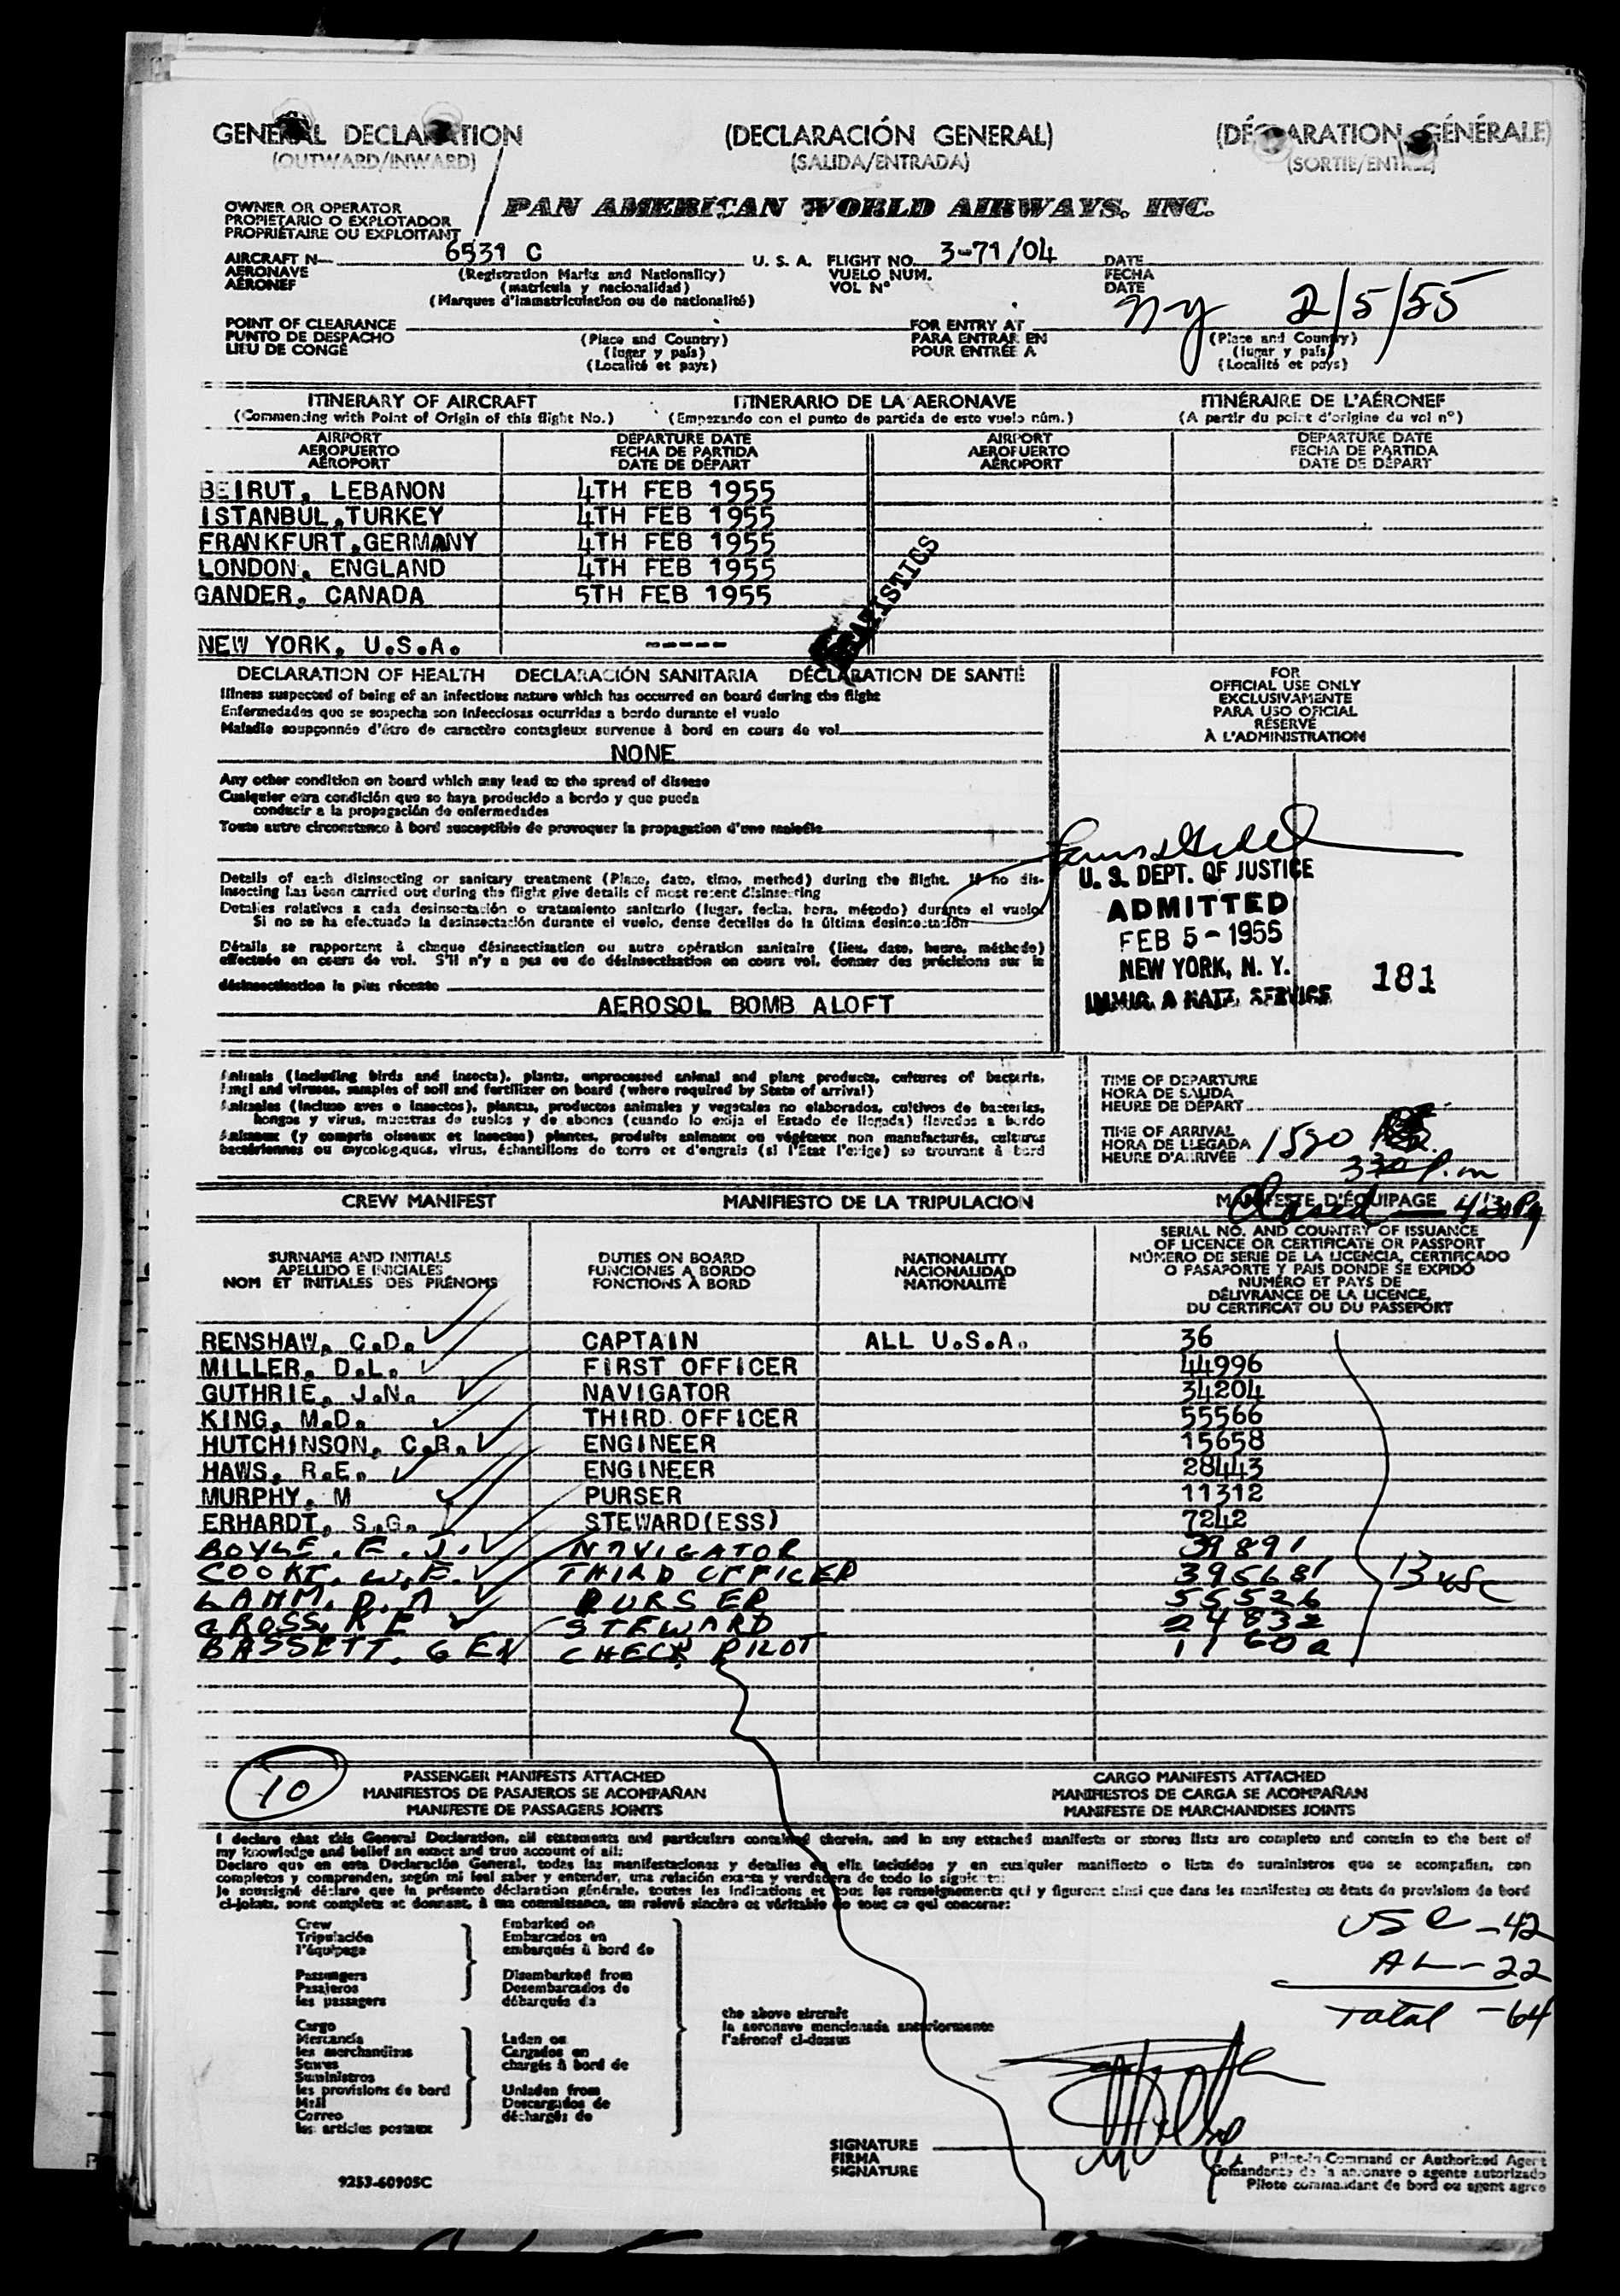 GENERAL DECLARATION (DECLARACIÓN GENERAL) (DÉCLARATION GÉNÉRALE)
(OUTWARD/INWARD) (SALIDA/ENTRADA) (SORTIE/ENTRÉE)
OWNER OR OPERATOR
PROPIETARIO O EXPLOTADOR
PROPRIÉTAIRE OU EXPLOITANT
PAN AMERICAN WORLD AIRWAYS, INC.
AIRCRAFT N— 6531 C U. S. A. FLIGHT NO. 3-71/04 DATE
AERONAVE (Registration Marks and Nationality) VUELO NUM. FECHA
AÉRONEF (matrícula y nacionalidad) VOL Nº DATE
(Marques d'immatriculation ou de nationalité)
NY 2/5/55
POINT OF CLEARANCE FOR ENTRY AT
PUNTO DE DESPACHO (Place and Country) PARA ENTRAR EN (Place and Country)
LIEU DE CONGÉ (lugar y país) POUR ENTRÉE A (lugar y país)
(Localité et pays) (Localité et pays)
ITINERARY OF AIRCRAFT ITINERARIO DE LA AERONAVE ITINÉRAIRE DE L'AÉRONEF
(Commencing with Point of Origin of this flight No.) (Empezando con el punto de partida de este vuelo núm.) (A partir du point d'origine du vol nº)
AIRPORT DEPARTURE DATE AIRPORT DEPARTURE DATE
AEROPUERTO FECHA DE PARTIDA AEROPUERTO FECHA DE PARTIDA
AÉROPORT DATE DE DÉPART AÉROPORT DATE DE DÉPART
BEIRUT, LEBANON 4TH FEB 1955
ISTANBUL,TURKEY 4TH FEB 1955
FRANKFURT,GERMANY 4TH FEB 1955
LONDON, ENGLAND 4TH FEB 1955
GANDER, CANADA 5TH FEB 1955
NEW YORK, U.S.A. -----
STATISTICS
DECLARATION OF HEALTH DECLARACIÓN SANITARIA DÉCLARATION DE SANTÉ
Illness suspected of being of an infectious nature which has occurred on board during the flight
Enfermedades que se sospecha son infecciosas ocurridas a bordo durante el vuelo
Maladie soupçonnée d'être de caractère contagieux survenue à bord en cours de vol
NONE
Any other condition on board which may lead to the spread of disease
Cualquier otra condición que se haya producido a bordo y que pueda
conducir a la propagación de enfermedades
Toute autre circonstance à bord susceptible de provoquer la propagation d'une maladie
Details of each disinsecting or sanitary treatment (Place, date, time, method) during the flight. If no dis-
insecting has been carried out during the flight give details of most recent disinsecting
Detalles relativos a cada desinsectación o tratamiento sanitario (lugar, fecha, hora, método) durante el vuelo.
Si no se ha efectuado la desinsectación durante el vuelo, dense detalles de la última desinsectación
Détails se rapportant à chaque désinsectisation ou autre opération sanitaire (lieu, date, heure, méthode)
effectuée en cours de vol. S'il n'y a pas eu de désinsectisation en cours vol, donner des précisions sur la
désinsectisation la plus récente
AEROSOL BOMB ALOFT
FOR
OFFICIAL USE ONLY
EXCLUSIVAMENTE
PARA USO OFICIAL
RÉSERVÉ
À L'ADMINISTRATION
U. S. DEPT. OF JUSTICE
ADMITTED
FEB 5 - 1955
NEW YORK, N. Y.
IMMIG. & NATZ. SERVICE
181
Animals (including birds and insects), plants, unprocessed animal and plant products, cultures of bacteria,
fungi and viruses, samples of soil and fertilizer on board (where required by State of arrival)
Animales (incluso aves e insectos), plantas, productos animales y vegetales no elaborados, cultivos de bacterias,
hongos y virus, muestras de suelos y de abonos (cuando lo exija el Estado de llegada) llevados a bordo
Animaux (y compris oiseaux et insectes) plantes, produits animaux ou végétaux non manufacturés, cultures
bactériennes ou mycologiques, virus, échantillons de terre et d'engrais (si l'État l'exige) se trouvant à bord
TIME OF DEPARTURE
HORA DE SALIDA
HEURE DE DÉPART
TIME OF ARRIVAL
HORA DE LLEGADA
HEURE D'ARRIVÉE
330 p.m
Closed — 4:30 P
CREW MANIFEST MANIFIESTO DE LA TRIPULACION MANIFESTE D'ÉQUIPAGE
SURNAME AND INITIALS
APELLIDO E INICIALES
NOM ET INITIALES DES PRÉNOMS
DUTIES ON BOARD
FUNCIONES A BORDO
FONCTIONS À BORD
NATIONALITY
NACIONALIDAD
NATIONALITÉ
SERIAL NO. AND COUNTRY OF ISSUANCE
OF LICENCE OR CERTIFICATE OR PASSPORT
NÚMERO DE SERIE DE LA LICENCIA, CERTIFICADO
O PASAPORTE Y PAIS DONDE SE EXPIDÓ
NUMÉRO ET PAYS DE
DÉLIVRANCE DE LA LICENCE,
DU CERTIFICAT OU DU PASSEPORT
RENSHAW, C.D. CAPTAIN ALL U.S.A. 36
MILLER, D.L. FIRST OFFICER 44996
GUTHRIE, J.N. NAVIGATOR 34204
KING, M.D. THIRD OFFICER 55566
HUTCHINSON, C.R. ENGINEER 15658
HAWS, R.E. ENGINEER 28443
MURPHY, M PURSER 11312
ERHARDT, S.G. STEWARD(ESS) 7242
BOYLE, E.J. NAVIGATOR 39891
COOKE, W.E. THIRD OFFICER 395681
LAMM, D.A PURSER 55526
GROSS, R E STEWARD 24832
BASSETT, G EN CHECK PILOT 11602
13 USC
10
PASSENGER MANIFESTS ATTACHED CARGO MANIFESTS ATTACHED
MANIFIESTOS DE PASAJEROS SE ACOMPAÑAN MANIFIESTOS DE CARGA SE ACOMPAÑAN
MANIFESTE DE PASSAGERS JOINTS MANIFESTE DE MARCHANDISES JOINTS
I declare that this General Declaration, all statements and particulars contained therein, and in any attached manifests or stores lists are complete and contain to the best of
my knowledge and belief an exact and true account of all:
Declaro que en esta Declaración General, todas las manifestaciones y detalles en ella incluidos y en cualquier manifiesto o lista de suministros que se acompañan, son
completos y comprenden, según mi leal saber y entender, una relación exacta y verdadera de todo lo siguiente:
Je soussigné déclare que la présente déclaration générale, toutes les indications et tous les renseignements qui y figurent ainsi que dans les manifestes ou états de provisions de bord
ci-joints, sont complets et donnent, à ma connaissance, un relevé sincère et véritable de tout ce qui concerne:
Crew
Tripulación
l'équipage
Passengers
Pasajeros
les passagers
Embarked on
Embarcados en
embarqués à bord de
Disembarked from
Desembarcados de
débarqués de
Cargo
Mercancía
les marchandises
Stores
Suministros
les provisions de bord
Mail
Correo
les articles postaux
Laden on
Cargados en
chargés à bord de
Unladen from
Descargados de
déchargés de
the above aircraft
la aeronave mencionada anteriormente
l'aéronef ci-dessus
USC - 42
AL - 22
Total - 64
SIGNATURE
FIRMA
SIGNATURE
Pilot-in-Command or Authorized Agent
Comandante de la aeronave o agente autorizado
Pilote commandant de bord ou agent agréé
9253-60905C